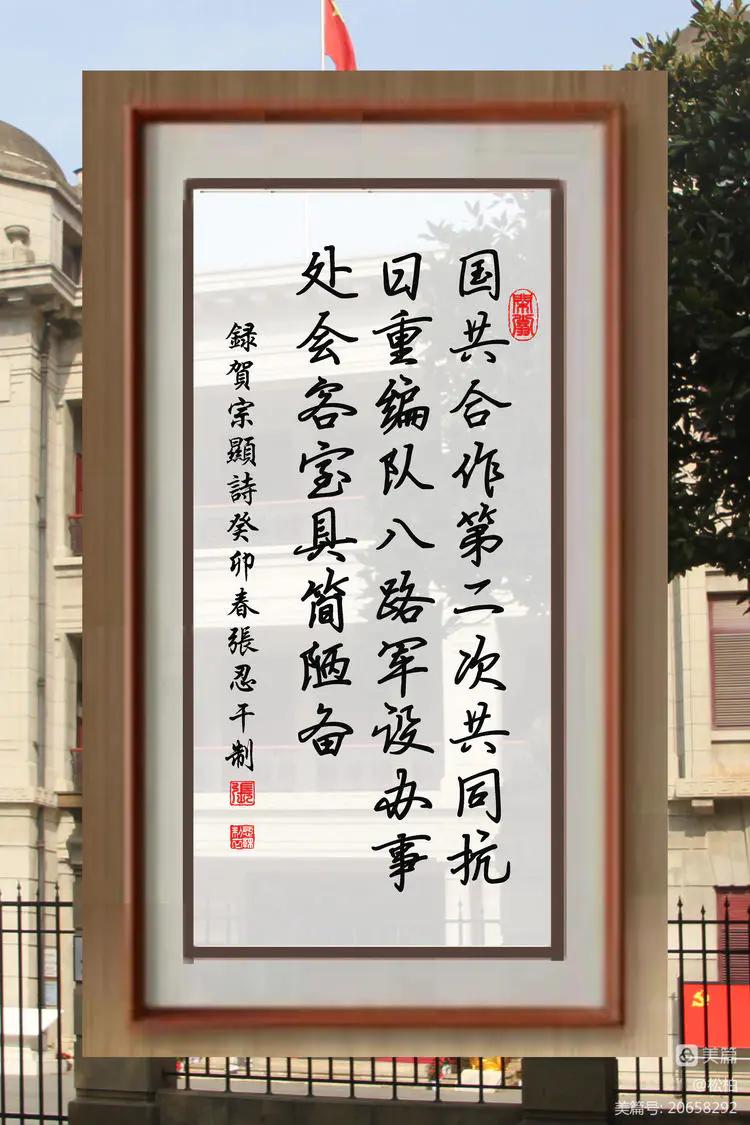 国共合作第二次共同抗
日重编队八路军设办事
处会客室具简陋备
録賀宗顯詩癸卯春張忍干制
張
美篇
@松柏
美篇号: 20658292